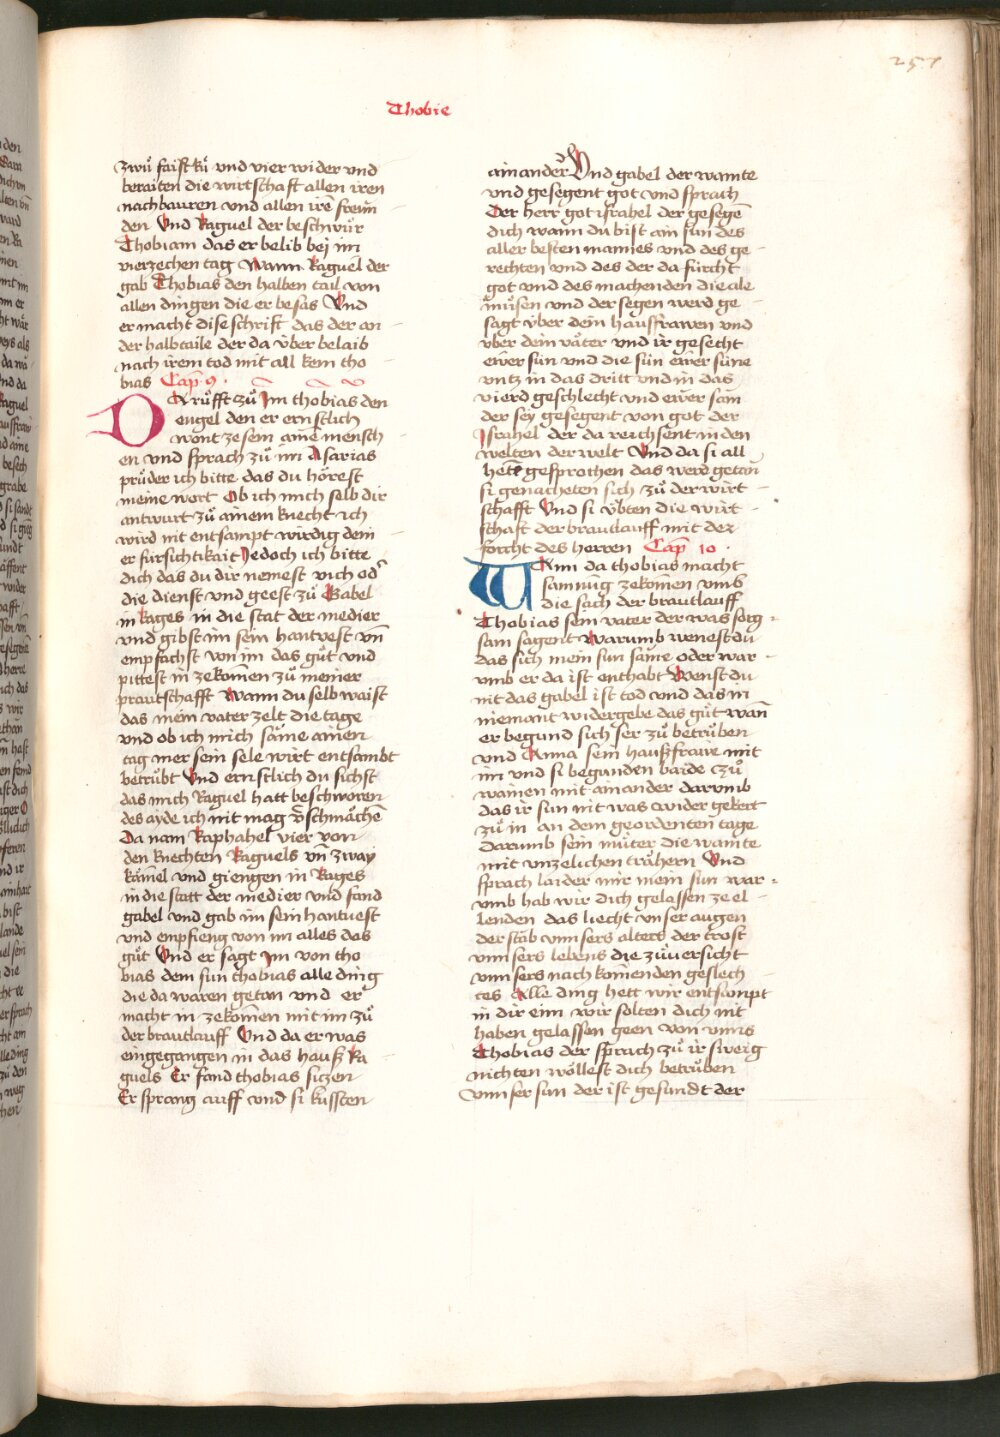 257
Thobie
zwuͦ faist kuͤ vnd vier wider vnd
beraiten die wirtschaft allen iren
nachbauren vnd allen irē freūn
den Vnd Raguel der beschwuͦr
Thobiam das er belib bei im
vierzechen tag Wann Raguel der
gab Thobias den halben tail von
allen dingen die er besas Vnd
er macht dise schrift das der an
der halbtaile der da v̈ber belaib
nach irem tod mit all kem tho
bias Cap̄ 9 .
DA ruͦfft zuͦ Im thobias den
engel den er ernstlich
wont ze sein aine mensch
en vnd sprach zuͦ im Asarias
pruͤder ich bitte das du hoͤrest
meine wort Ob ich mich selb dir
antwurt zuͦ ainem knecht ich
wird nit entsampt wirdig dein
er fursichtikait Jedoch ich bitte
dich das du dir nemest vich od'
die dienst vnd geest zuͦ Gabel
in Rages in die stat der medier
vnd gibst im sein hantvest vn̄
empfachst von im das guͤt vnd
pittest in ze komen zuͦ meiner
prautschafft Wann du selb waist
das mein vater zelt die tage
vnd ob ich mich saͤme ainen
tag mer sein sele wirt entsambt
betruͤbt Vnd ernstlich du sichst
das mich Raguel hatt beschworen
des ayde ich nit mag v̄schmaͤchē
Da nam Raphahel vier von
den knechten Raguels vn̄ zway
kaͤmel vnd giengen in Rages
in die statt der medier vnd fand
gabel vnd gab im sein hantuest
vnd empfieng von im alles das
guͤt Vnd er sagt Im von tho
bias dem sun thobias alle ding
die da waren getan vnd er
macht in ze komen mit im zuͦ
der brautlauff Vnd da er was
eingegangen in das hauß Ra
guels Er fand thobias sizen
Er sprang auff vnd si kussten
ainander Vnd gabel der wainte
vnd gesegent got vnd sprach
Der herr got israhel der gesegē
dich wann du bist ain sun des
aller besten mannes vnd des ge
rechten vnd des der da fürcht
got vnd des machenden die ale
muͦsen vnd der segen werd ge
sagt v̈ber dein hauffrawen vnd
v̈ber dein vaͤter vnd ir gesecht
ewer sün vnd die sün ewer süne
vntz in das dritt vnd in das
vierd geschlecht vnd ewer sam
der sey gesegent von got der
Israhel der da reichsent in den
welten der welt Vnd da si all
hetē gesprochen das werd getan
si genacheten sich zuͦ der wirt
schafft Vnd si v̈bten die wirt
schaft der brautlauff mit der
forcht des herren Cap̄ 10 .
WAnn da thobias macht
samnūg ze komen vmb
die sach der brautlauff
Thobias sein vater der was sorg
sam sagent Warumb wenest du
das sich mein sun saͤme oder war
vmb er da ist enthabt Wenst du
nit das gabel ist tod vnd das in
niemant widergebe das guͤt wan̄
er begund sich ser zuͦ betruͤben
vnd Anna sein haußfrawe mit
im vnd si begunden baide zuͦ
wainen mit ainander darvmb
das ir sun nit was wider gekert
zuͦ in an dem geordenten tage
Darumb sein muͤter die wainte
mit vnzelichen traͤhern Vnd
sprach laider mir mein sun war
vmb hab wir dich gelassen ze el
lenden das liecht vnser augen
der stab vnnsers alters der trost
vnnsers lebens die zuͦuersicht
vnnsers nach komenden geslech
tes Alle ding hett wir entsampt
in dir ein wir solten dich nit
haben gelassen geen von vnns
Thobias der sprach zuͦ ir sweig
nichten woͤllest dich betruͤben
vnnser sun der ist gesundt der